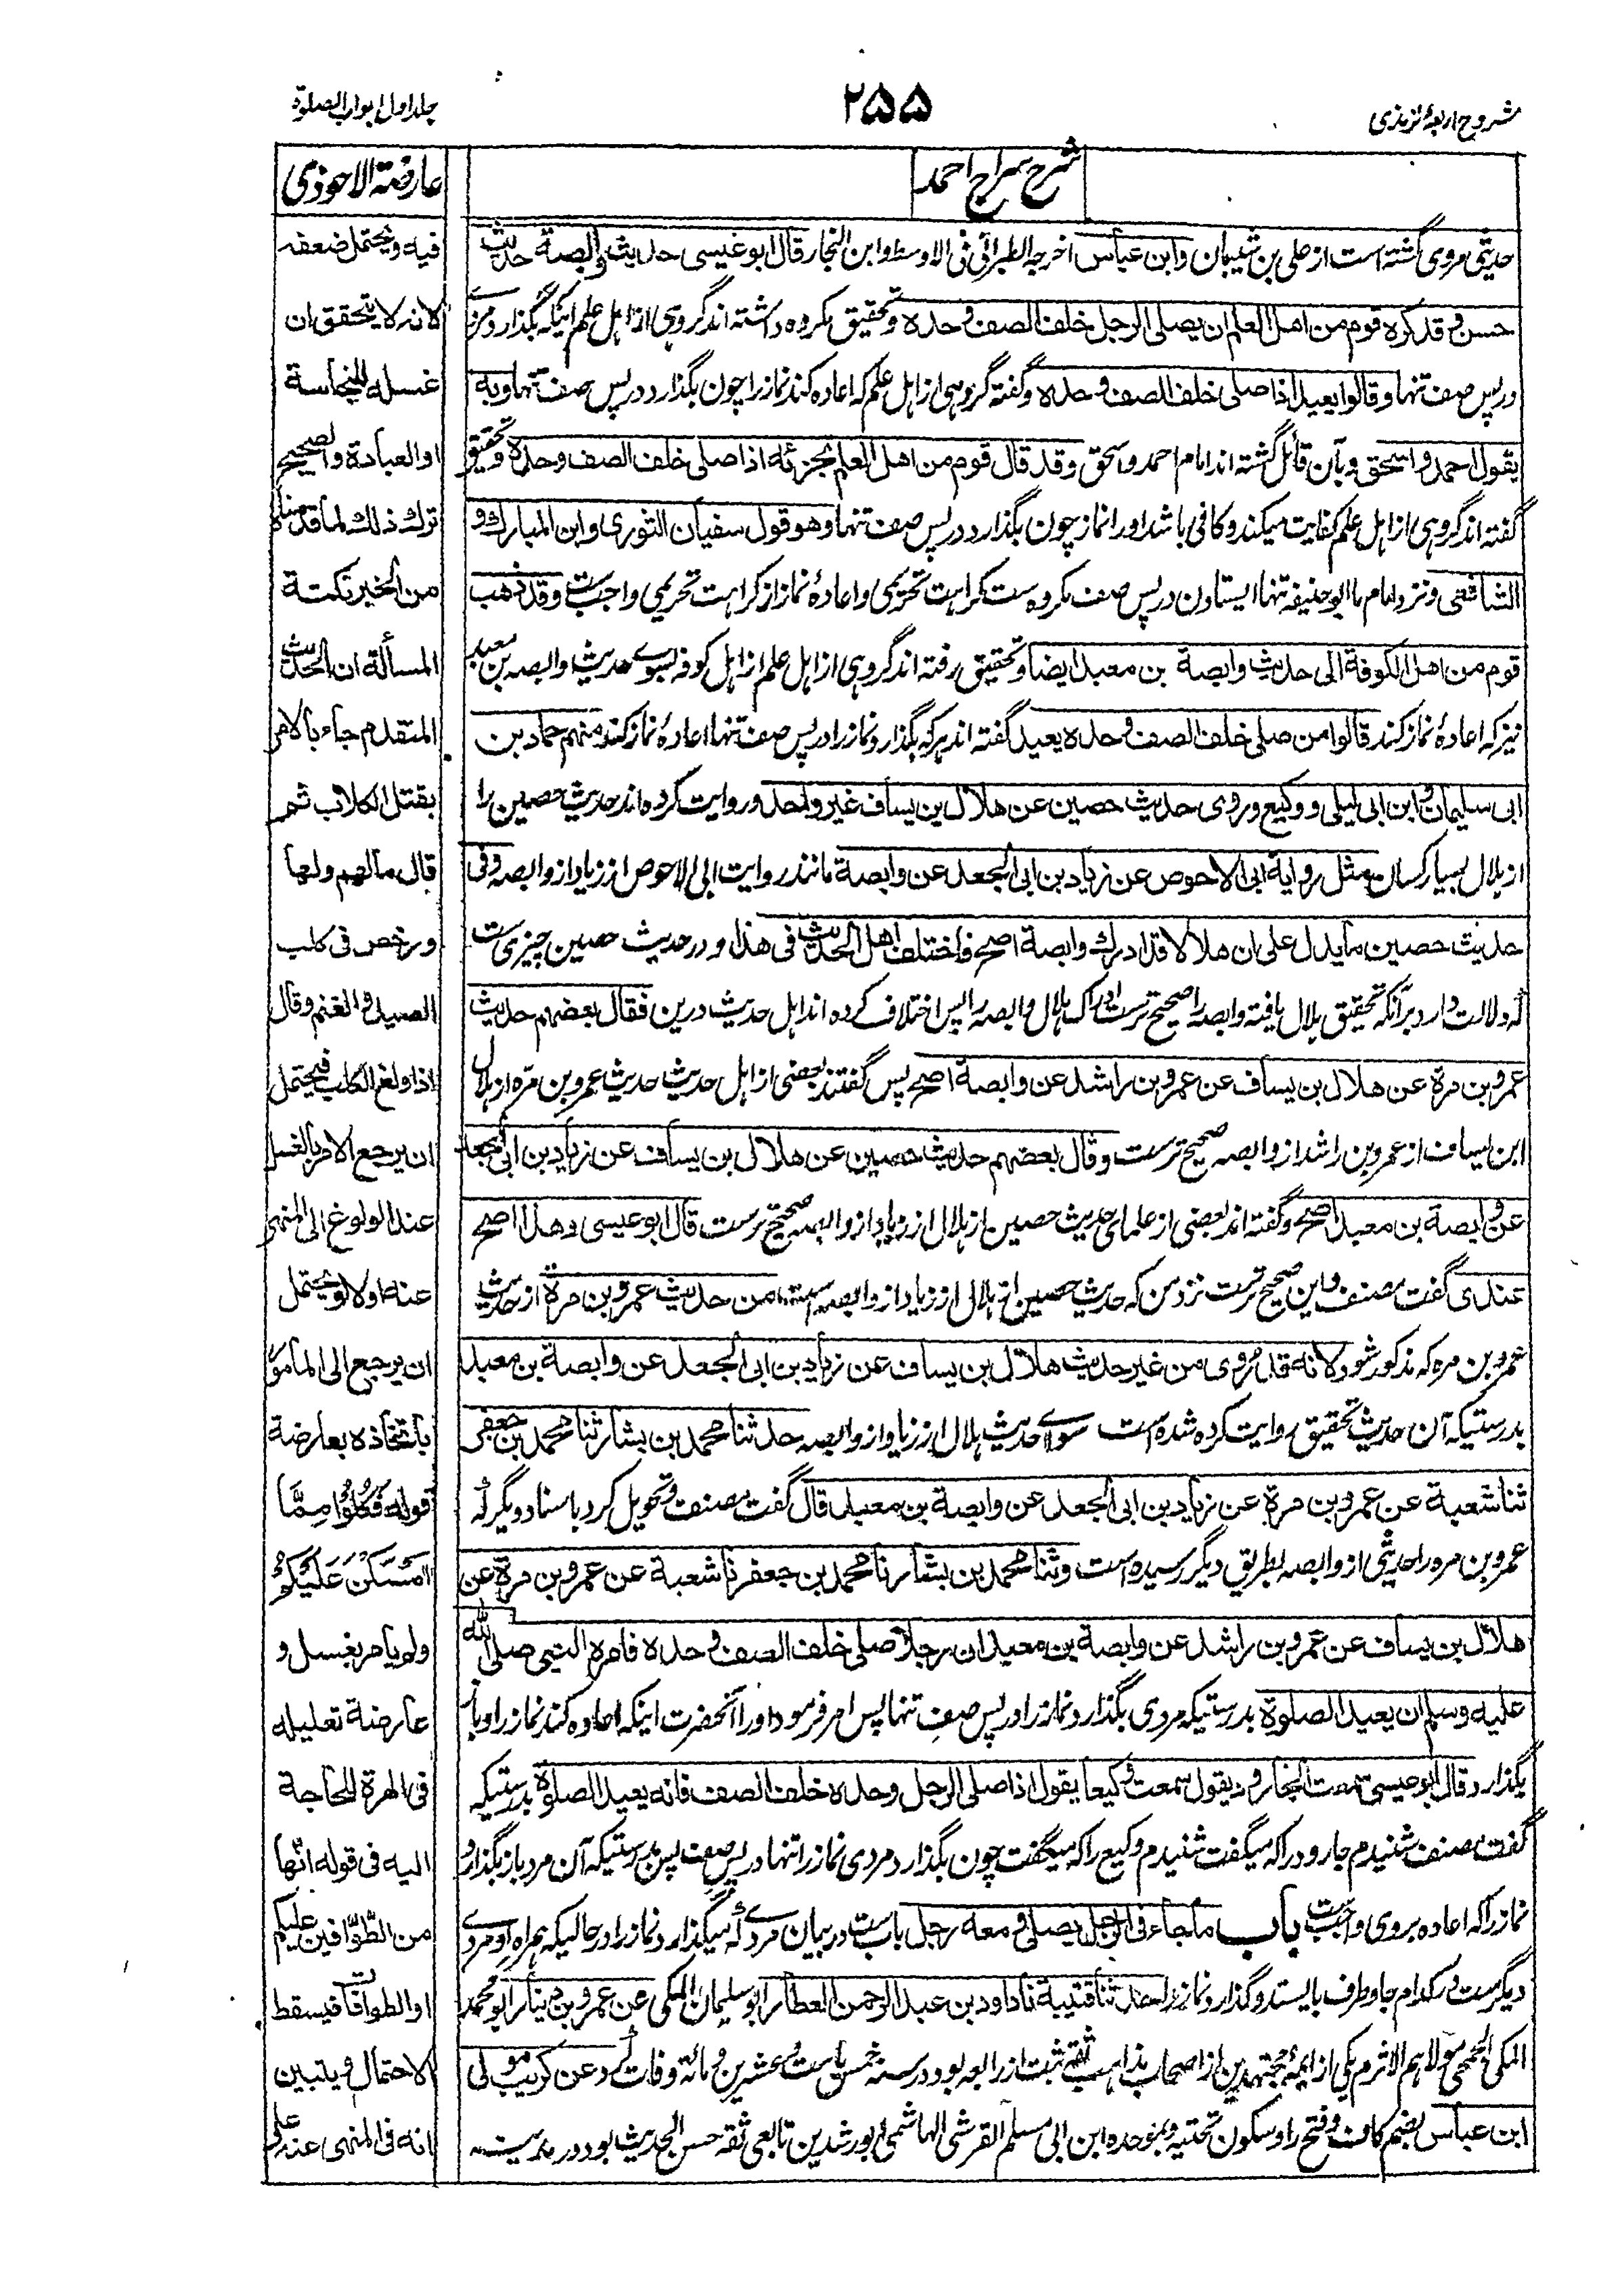 شروح اربعهٔ ترمذی
۲۵۵
جلد اول ابواب الصلوٰة
شرح سراج احمد
حدیثی مروی گشته است از علی بن شیبان وابن عباس اخرجه الطبرانی فی الاوسط وابن النجار قال ابو عیسی حدیث وابصة حدیث
حسن وقد کره قوم من اهل العلم ان یصلی الرجل خلف الصف وحده وتحقیق مکروه داشته اند گروهی از اهل علم اینکه بگذارد مردے
در پس صف تنها وقالوا یعید اذا صلی خلف الصف وحده وگفته گروهی از اهل علم که اعاده کند نماز را چون بگذارد در پس صف تنها وبه
یقول احمد واسحق وبآن قائل گشته اند امام احمد واسحق وقد قال قوم من اهل العلم یجزئه اذا صلی خلف الصف وحده وتحقیق
گفته اند گروهی از اهل علم کفایت میکند وکافی باشد او را نماز چون بگذارد در پس صف تنها وهو قول سفیان الثوری وابن المبارك و
الشافعی ونزد امام ما ابو حنیفه تنها ایستادن در پس صف مکروه ست کراهت تحریمی واعادهٔ نماز از کراهت تحریمی واجب ست وقد ذهب
قوم من اهل الکوفة الی حدیث وابصة بن معبد ایضا وتحقیق رفته اند گروهی از اهل علم از اهل کوفه بسوے حدیث وابصه بن معبد
نیز که اعادهٔ نماز کند قالوا من صلی خلف الصف وحده یعید گفته اند هر که بگذارد نماز را در پس صف تنها اعادهٔ نماز کند منهم حماد بن
ابی سلیمان وابن ابی لیلی ووکیع وروی حدیث حصین عن هلال بن یساف غیر واحد وروایت کرده اند حدیث حصین را
از هلال بسیار کسان مثل روایة ابی الاحوص عن زیاد بن ابی الجعد عن وابصة مانند روایت ابی الاحوص از زیاد از وابصه وفی
حدیث حصین ما یدل علی ان هلالا قد ادرك وابصة اصح فاختلف اهل الحدیث فی هذا ودر حدیث حصین چیزی ست
که دلالت دارد بر آنکه تحقیق هلال یافته وابصه را صحیح ترست ادراک هلال وابصه را پس اختلاف کرده اند اهل حدیث درین فقال بعضهم حدیث
عمرو بن مرة عن هلال بن یساف عن عمرو بن راشد عن وابصة اصح پس گفتند بعضی از اهل حدیث حدیث عمرو بن مره از هلال
ابن یساف از عمرو بن راشد از وابصه صحیح ترست وقال بعضهم حدیث حصین عن هلال بن یساف عن زیاد بن ابی الجعد
عن وابصة بن معبد اصح وگفته اند بعضی از علمای حدیث حصین از هلال از زیاد از وابصه صحیح ترست قال ابو عیسی وهذا اصح
عندی گفت مصنف واین صحیح ترست نزد من که حدیث حصین از هلال از زیاد از وابصه ست من حدیث عمرو بن مرة از حدیث
عمرو بن مره که مذکور شود لانه قد روی من غیر حدیث هلال بن یساف عن زیاد بن ابی الجعد عن وابصة بن معبد
بدرستیکه آن حدیث تحقیق روایت کرده شده است سوائے حدیث هلال از زیاد از وابصه حدثنا محمد بن بشار ثنا محمد بن جعفر
ثنا شعبة عن عمرو بن مرة عن زیاد بن ابی الجعد عن وابصة بن معبد قال گفت مصنف وتحویل کرد باسناد دیگر که
عمرو بن مره را حدیثی از وابصه بطریق دیگر رسیده است وثنا محمد بن بشار نا محمد بن جعفر نا شعبة عن عمرو بن مرة عن
هلال بن یساف عن عمرو بن راشد عن وابصة بن معبد ان رجلا صلی خلف الصف وحده فامره النبی صلی الله
علیه وسلم ان یعید الصلوة بدرستیکه مردی بگذارد نماز را در پس صف تنها پس امر فرمود او را آنحضرت اینکه اعاده کند نماز را وباز
بگذارد قال ابو عیسی سمعت الجارود یقول سمعت وکیعا یقول اذا صلی الرجل وحده خلف الصف فانه یعید الصلوة بدرستیکه
گفت مصنف شنیدم جارود را که میگفت شنیدم وکیع را که میگفت چون بگذارد مردی نماز را تنها در پس صف پس بدرستیکه آن مرد باز بگذارد
نماز را که اعاده بروی واجب ست باب ما جاء فی الرجل یصلی ومعه رجل باب ست در بیان مردے که میگذارد نماز را در حالیکه همراه او مردے
دیگرست در کدام جا وطرف بایستد وگذارد نماز را حدثنا قتیبة نا داود بن عبد الرحمن العطار ابو سلیمان المکی عن عمرو بن دینار ابو محمد
المکی الجمحی مولاهم الاثرم یکی از ایمه مجتهدین از اصحاب مذاهب ثقه ثبت از رابعه بود در سنه خمس یا ست وعشرین ومائة وفات کرد عن کریب مولی
ابن عباس بضم کاف وفتح را وسکون تحتیه وبموحده ابن ابی مسلم القرشی الهاشمی ابو رشدین تابعی ثقه حسن الحدیث بود در مدینه
عارضة الاحوذی
فیه ویحتمل ضعفه
لانه لا یتحقق ان
غسله للنجاسة
او العبادة والصحیح
ترك ذلك لما قدمناه
من الخبر نکتة
المسألة ان الحدیث
المتقدم جاء بالامر
بقتل الکلاب ثم
قال ما لهم ولها
ورخص فی کلب
الصید والغنم وقال
اذا ولغ الکلب فیحتمل
ان یرجع الامر بالغسل
عند الولوغ الی المنهی
عنه اولا ویحتمل
ان یرجع الی المأمور
باتخاذه بعارضة
قوله فَكُلُوْا مِمَّا
اَمْسَكْنَ عَلَيْكُمْ
ولم یامر بغسل و
عارضة تعلیله
فی الهرة للحاجة
الیه فی قوله انها
من الطوّافین علیکم
او الطوافات فیسقط
الاحتمال ویتبین
انه فی المنهی عنه علی